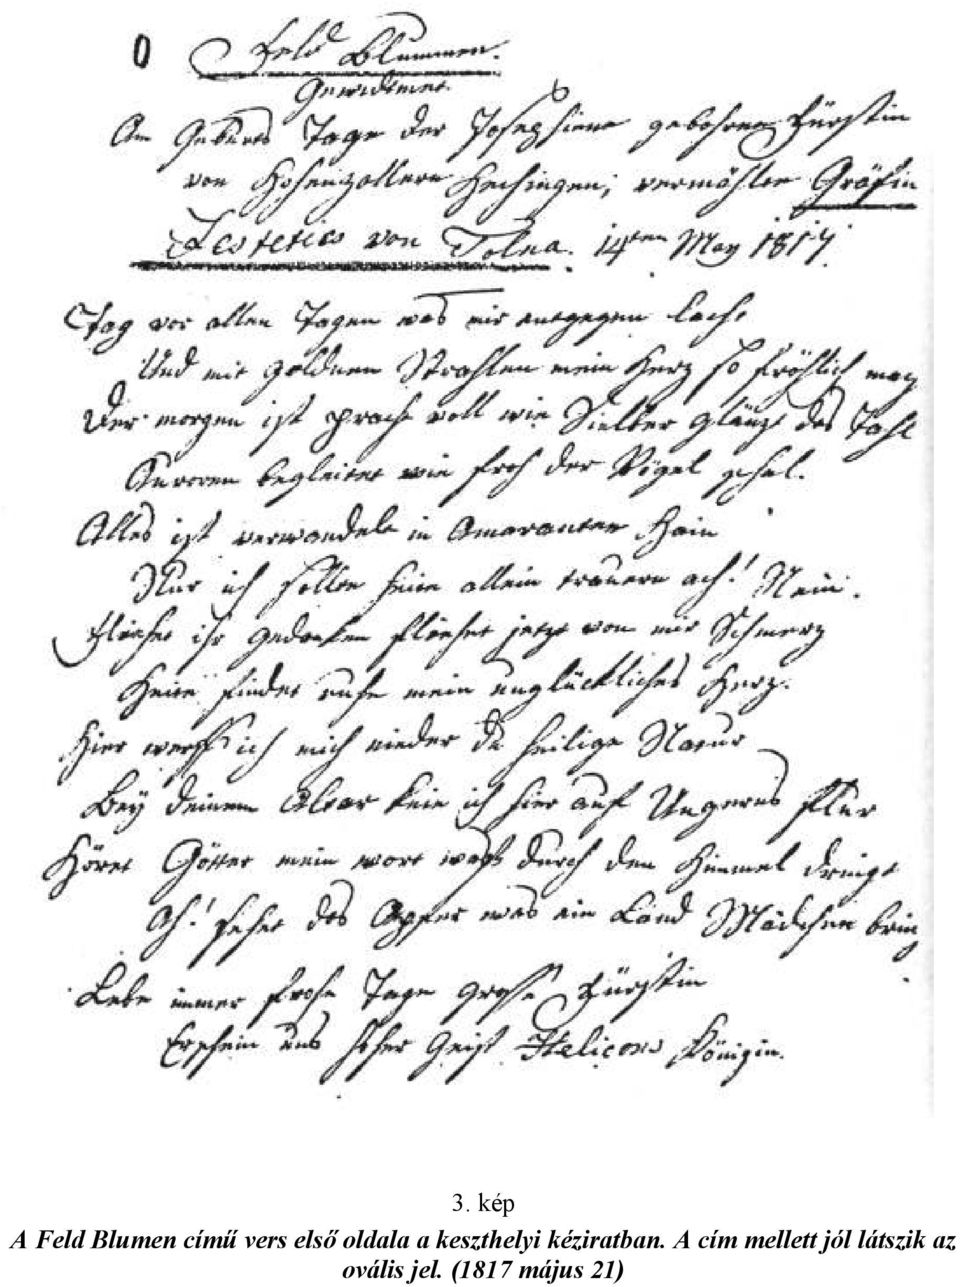 0 Feld Blummen.
Gewidtmet.
Am Geburts Tage der Josephiene gebohrene Fürstin
von Hohenzollern Hechingen; vermählte Gräfin
Festetics von Tolna. 14ten May 1817.
Tag vor allen Tagen was mir entgegen lach,
Und mit goldnen Strahlen mein Herz so fröhlich mag
Der morgen ist prache voll wie Sielber glänzt das Tahl
begleitet wie froh der Vögel schal.
Alles ist verwandelt in Amaranten Hain
Nur ich sollte heite allein trauern ach! Nein.
Fliehet ihr gedanken fliehet jetzt von mir Schmerz
Heite findet ruhe mein unglückliches Herz.
Hier werff ich mich nieder du heilige Natur
Bey deinem Altar knie ich hier auf Ungerns flur
Höret Götter mein wort was durch den Himmel dringt
Ah! sehet das Opfer was ein Land Mädchen bring
Lebe immer frohe Tage große Fürstin
Erschein uns hoher Geist Helicons Königin.
3. kép
A Feld Blumen című vers első oldala a keszthelyi kéziratban. A cím mellett jól látszik az
ovális jel. (1817 május 21)